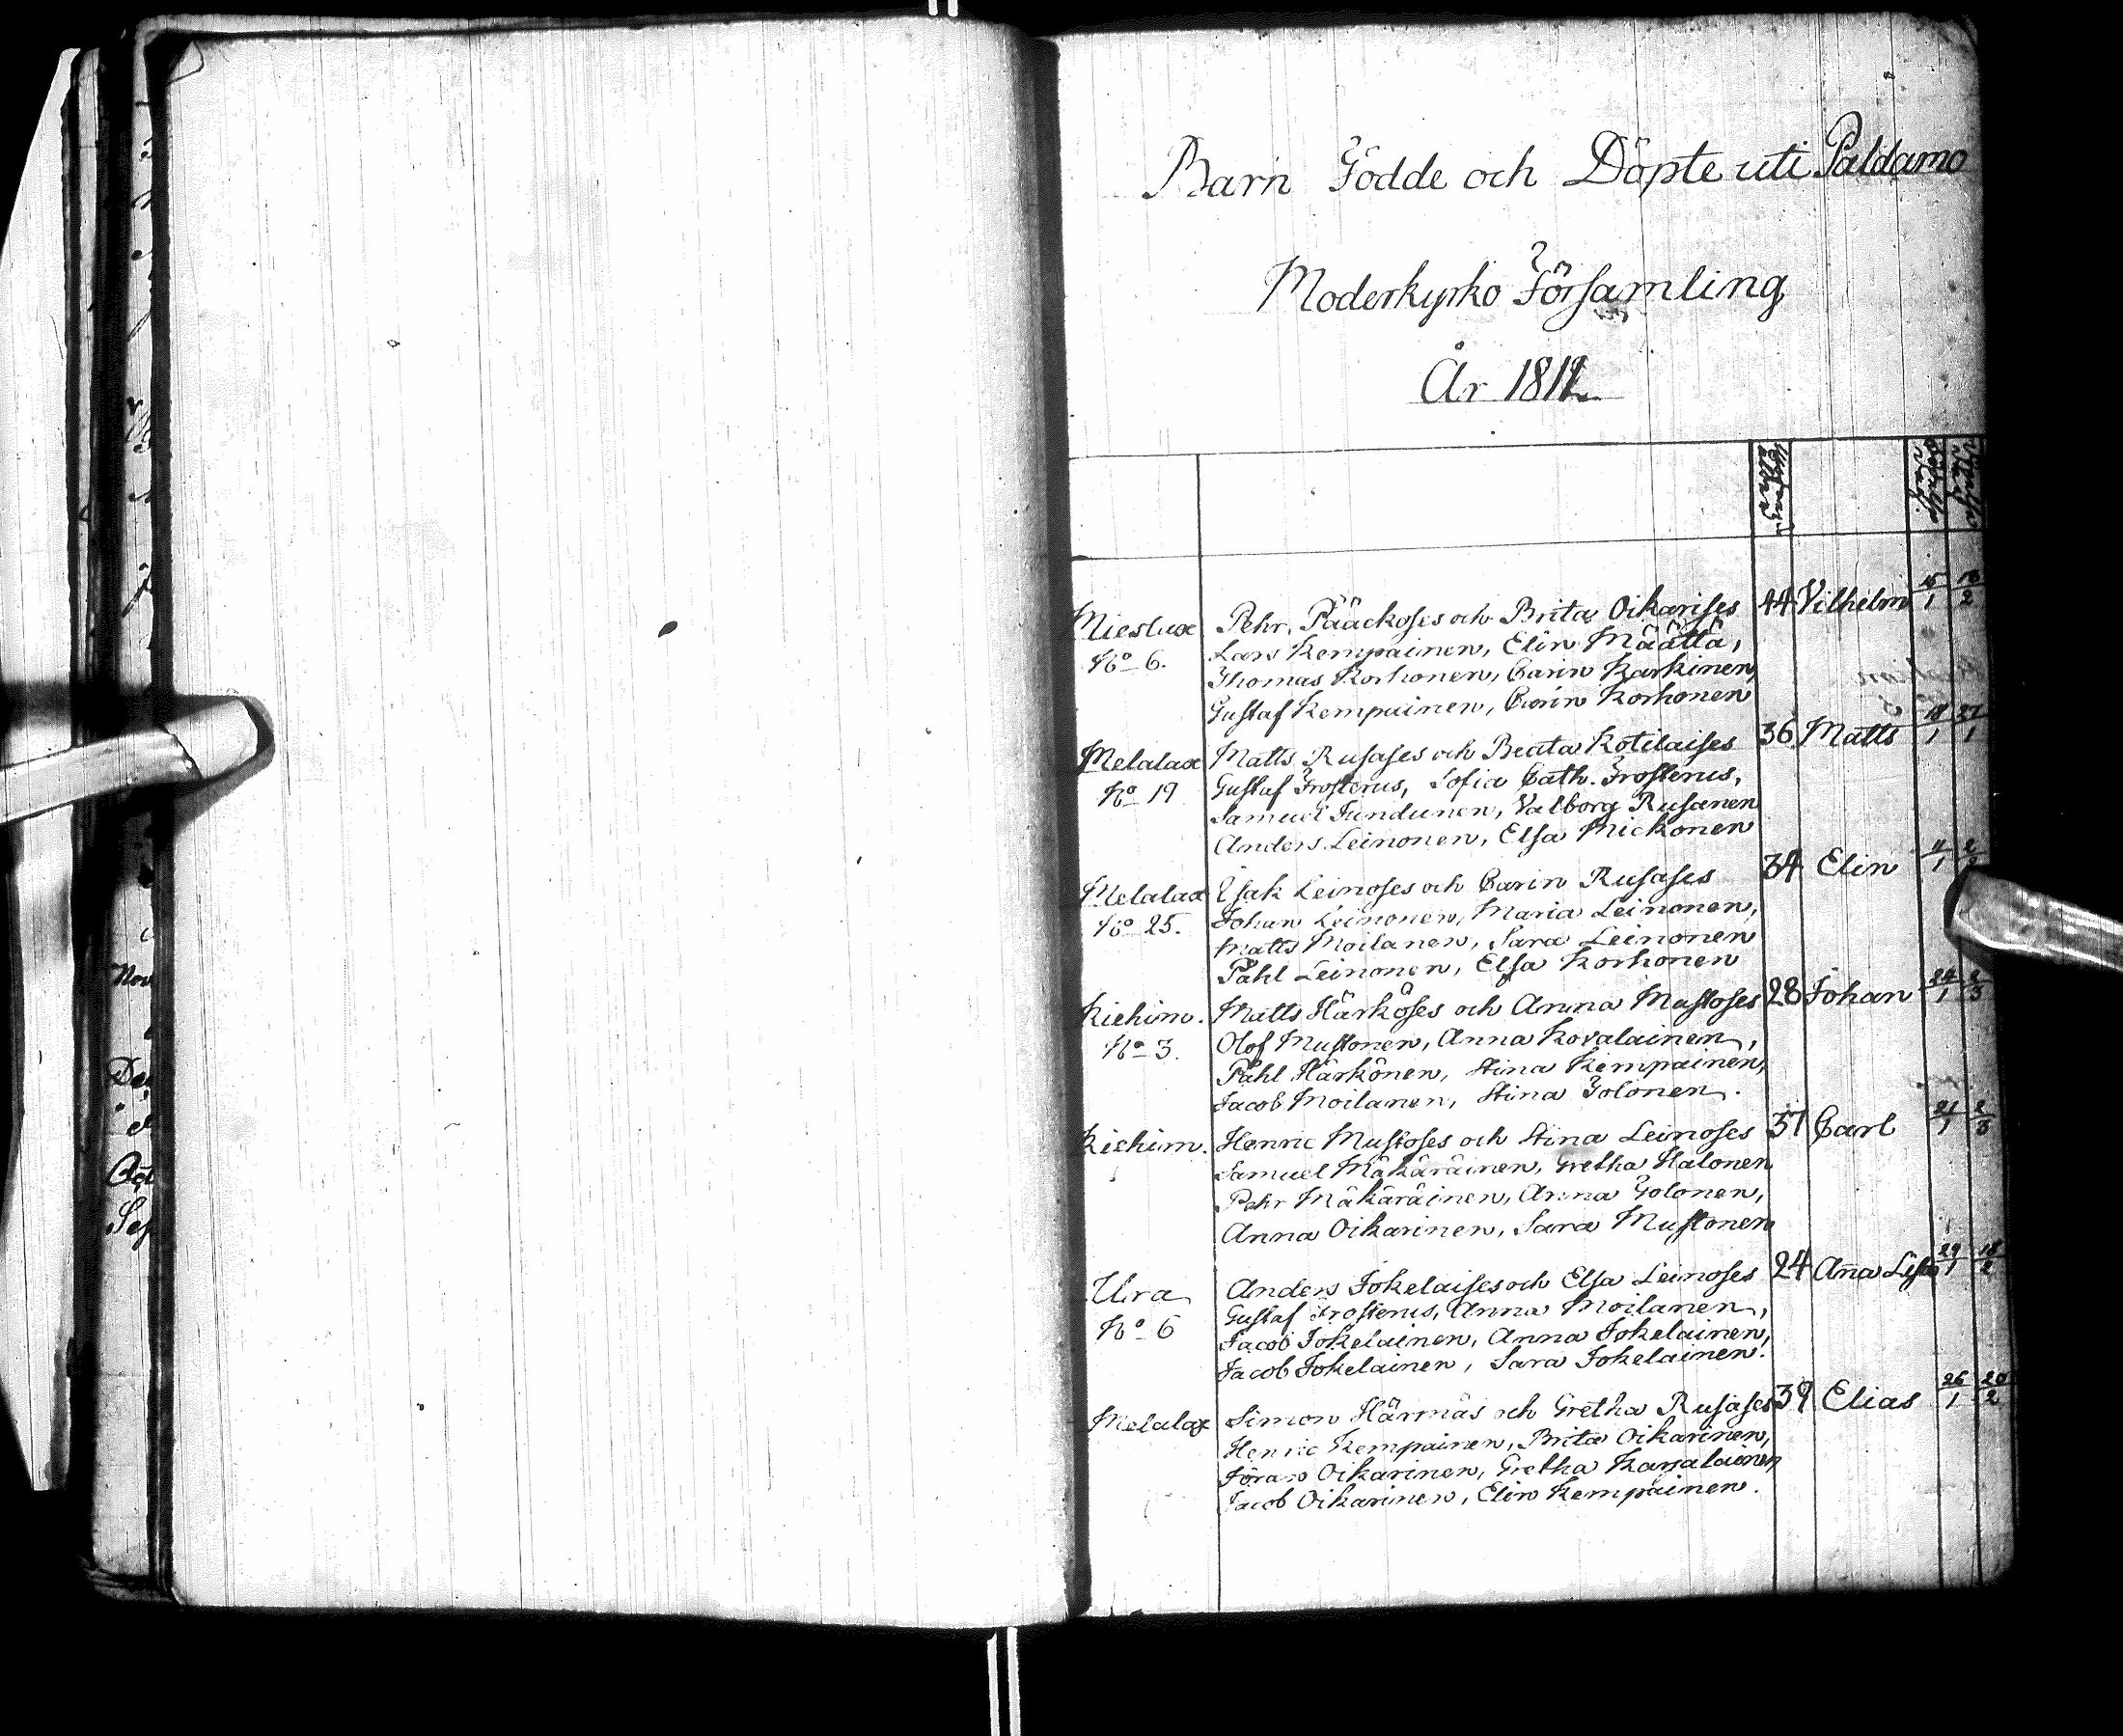 Barn Födde och Döpte uti Paldamo
Moderkyrko Församling
År 1812
Mieslax Pehr Pääckoses och Brita Oikarises 44 Vilhelm 15/1 16/2
No 6. Lars Kempainen, Elin Määttä,
Thomas Korhonen, Carin Karkinen,
Gustaf Kempainen, Carin Korhonen
Melalax Matts Rusases och Beata Kotilaises 36 Matts 18/1 27/1
No 19 Gustaf Frosterus, Sofia Cath. Frosterus,
Samuel Tundunen, Valborg Rusanen
Anders Leinonen, Elsa Mickonen
Melalax Isak Leinoses och Carin Rusases 34 Elin 11/1 2
No 25. Johan Leinonen, Maria Leinonen,
Matts Moilanen, Sara Leinonen
Påhl Leinonen, Elsa Korhonen
Kiehim. Matts Härköses och Anna Mustoses 28 Johan 24/1 2/3
No 3. Olof Mustonen, Anna Kovalainen,
Påhl Härkönen, Stina Kempainen,
Jacob Moilanen, Stina Tolonen.
Kiehim. Henric Mustoses och Stina Leinoses 37 Carl 21/1 2/3
Samuel Mäkäräinen, Gretha Halonen
Pehr Mäkäräinen, Anna Tolonen,
Anna Oikarinen, Sara Mustonen
Ura Anders Jokelaises och Elsa Leinoses 24 Aña Lisa 29/1 18/2
No 6 Gustaf Frosterus, Anna Moilanen,
Jacob Jokelainen, Anna Jokelainen,
Jacob Jokelainen, Sara Jokelainen.
Melalax Simon Härmäs och Gretha Rusases 39 Elias 26/1 20/2
Henric Kempainen, Brita Oikarinen,
Jöran Oikarinen, Gretha Karjalainen
Jacob Oikarinen, Elin Kempainen.